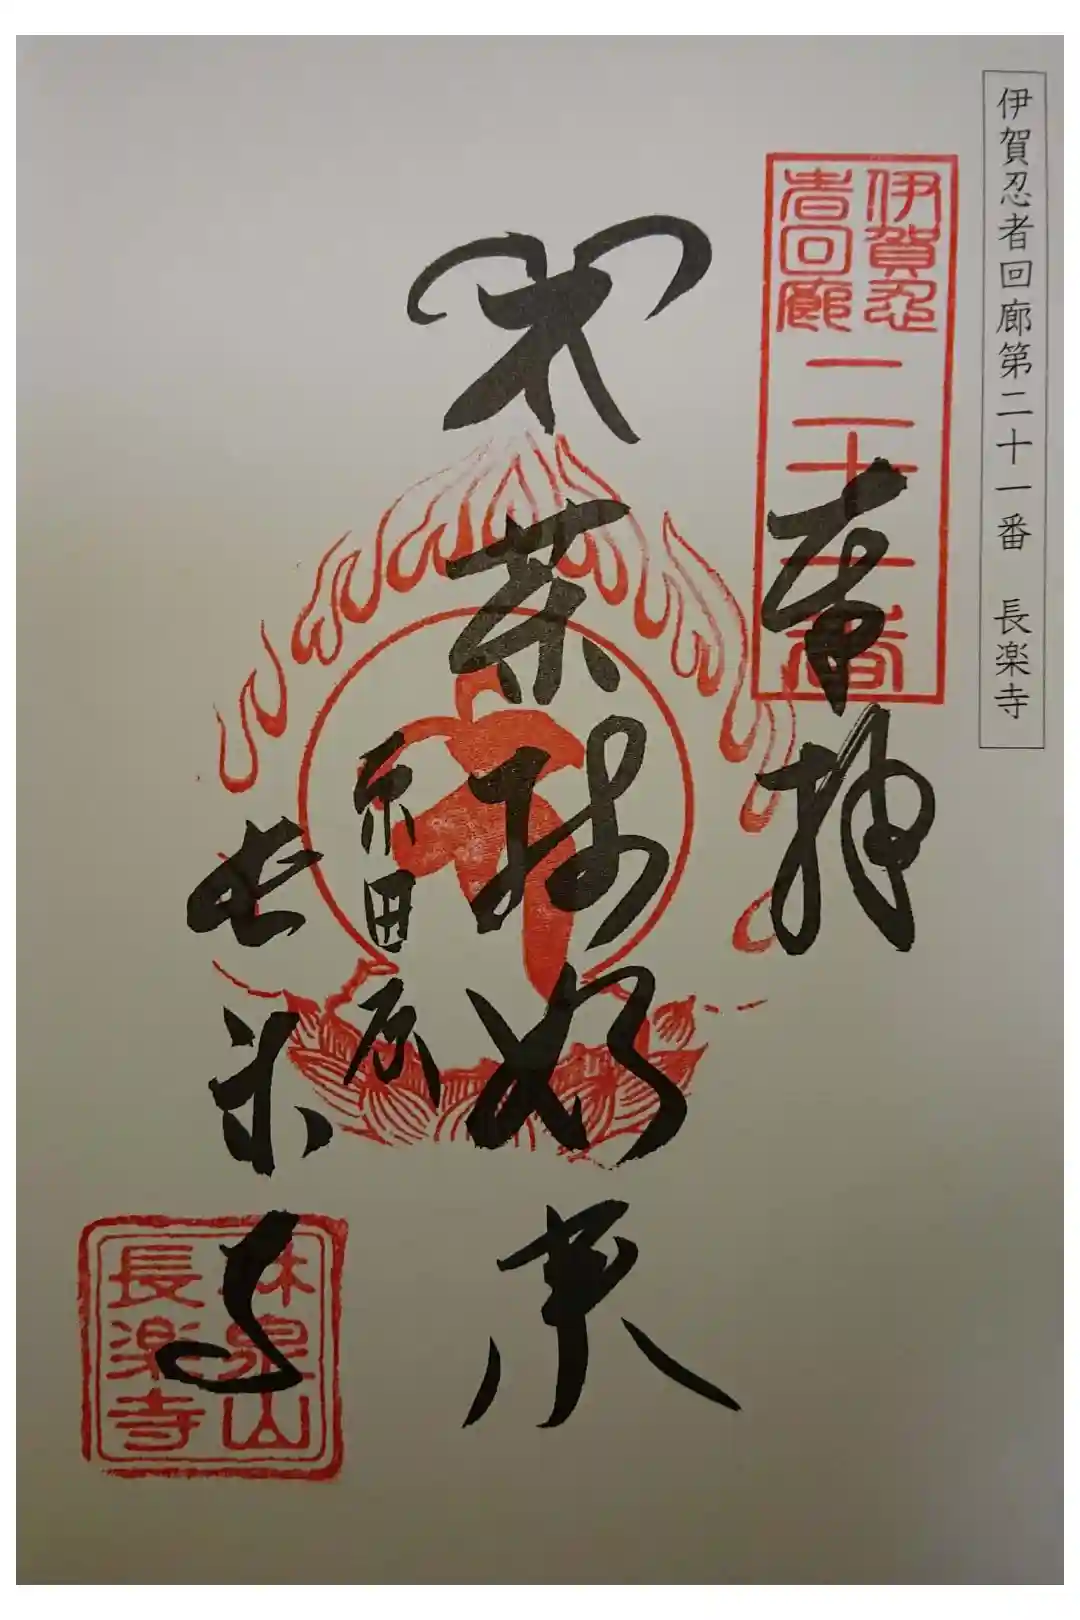 伊賀忍者回廊第二十一番　長楽寺
伊賀忍
者回廊
二十一番
奉拝
薬師如来
東田原
長楽寺
林泉山
長楽寺